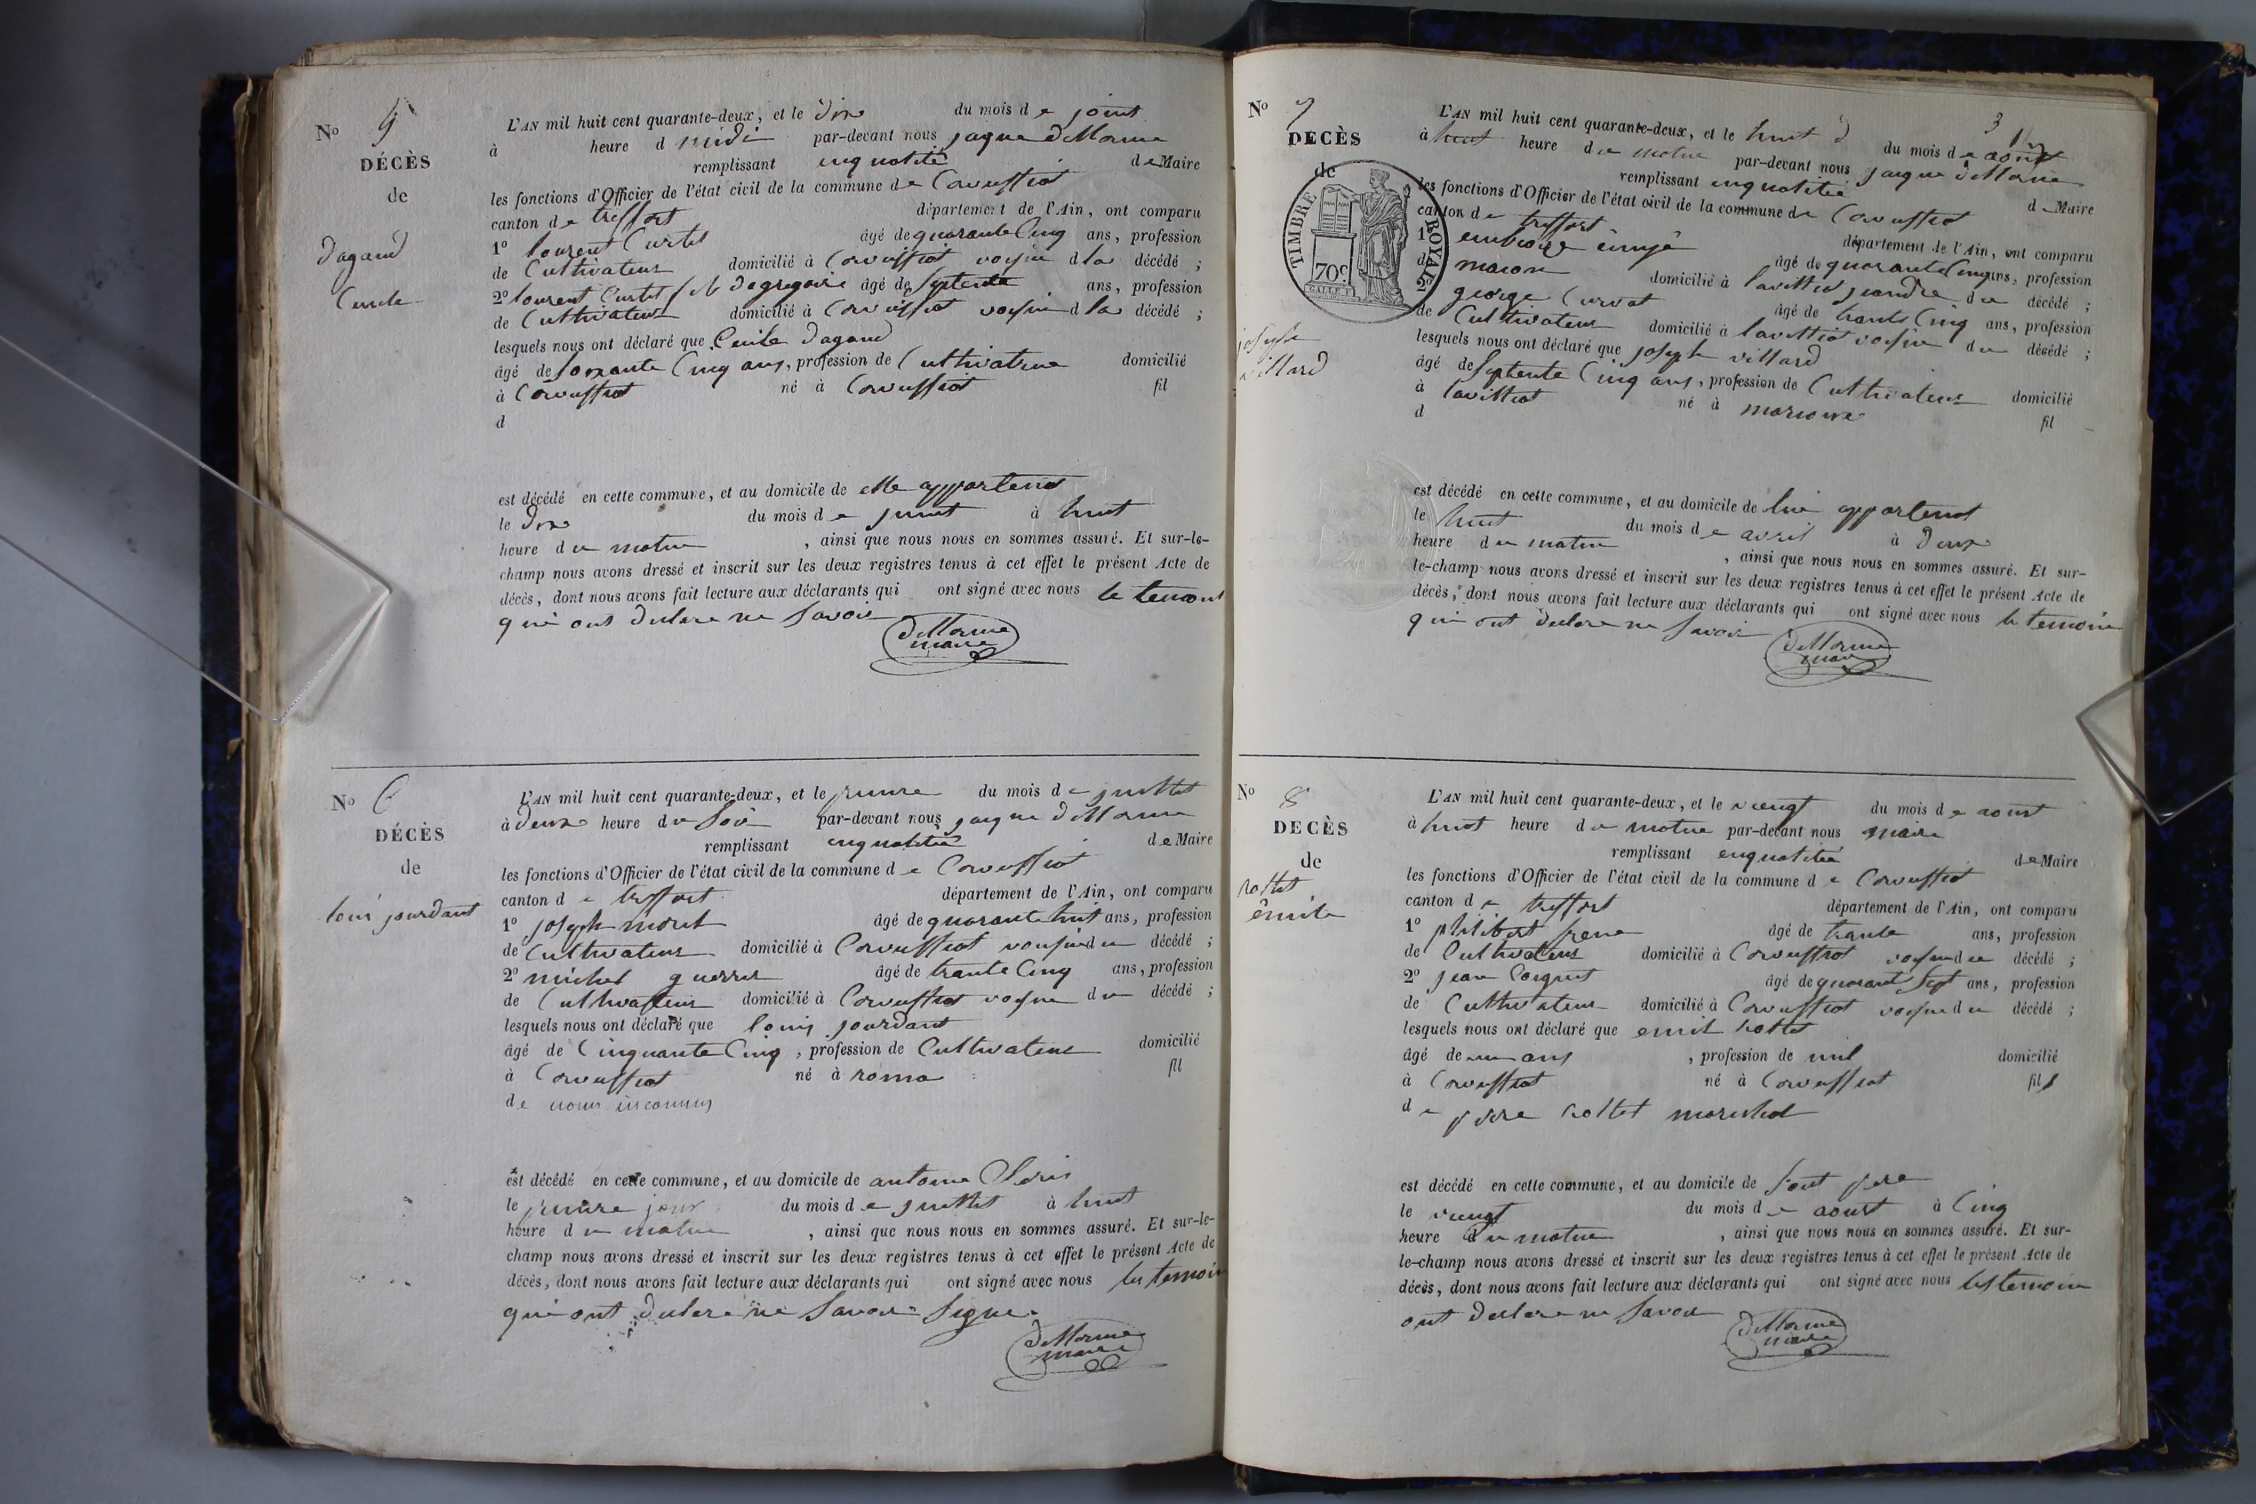 No 5
DÉCÈS
de
Dagand
Cecile
L'AN mil huit cent quarante-deux, et le dix du mois de joint
à heure d midi par-devant nous jaque deLlorme
remplissant enqualité de Maire
les fonctions d'Officier de l'état civil de la commune de Corveissiat
canton de treffort département de l'Ain, ont comparu
1o lourent Curtet âgé de quarante Cinq ans, profession
de Cultivateur domicilié à Corveissiat voisin d la décédé ;
2o lourent Curtet fils de gregoire âgé de septente ans, profession
de Cultivateur domicilié à Corveissiat voisin d la décédé ;
lesquels nous ont déclaré que Cecile dagand
âgé de soixante Cinq ans, profession de Cultivatrice domicilié
à Corveissiat né à Corveissiat fil
d
est décédé en cette commune, et au domicile de elle appartenet
le dix du mois de juint à huit
heure du matin , ainsi que nous nous en sommes assuré. Et sur-le-
champ nous avons dressé et inscrit sur les deux registres tenus à cet effet le présent Acte de
décès, dont nous avons fait lecture aux déclarants qui ont signé avec nous le temoint
qui ont declare ne savoir
deLlorme
maire
No 6
DÉCÈS
de
loui jourdant
L'AN mil huit cent quarante-deux, et le prumre du mois de juillet
à deux heure du soir par-devant nous jaque deLlorme
remplissant enqualité de Maire
les fonctions d'Officier de l'état civil de la commune de Corveissiat
canton de treffort département de l'Ain, ont comparu
1o joseph morel âgé de quarante huit ans, profession
de Cultivateur domicilié à Corveissiat voisin du décédé ;
2o michel guerrer âgé de trante Cinq ans, profession
de Cultivateur domicilié à Corveissiat voisin du décédé ;
lesquels nous ont déclaré que louis jourdant
âgé de Cinquante Cinq , profession de Cultivateur domicilié
à Corveissiat né à roma fil
de nous inconnus
est décédé en cette commune, et au domicile de antoine
le jour du mois de juillet à huit
heure du matin , ainsi que nous nous en sommes assuré. Et sur-le-
champ nous avons dressé et inscrit sur les deux registres tenus à cet effet le présent Acte de
décès, dont nous avons fait lecture aux déclarants qui ont signé avec nous les temoin
qui ont declaré ne savoir signe
deLlorme
maire
3
No 7
DECÈS
de
joseph
villard
TIMBRE ROYAL
70c
L'AN mil huit cent quarante-deux, et le huit du mois de aout
à huit heure du matin par-devant nous jaque deLlorme
remplissant enqualitié de Maire
les fonctions d'Officier de l'état civil de la commune de Corveissiat
canton de treffort département de l'Ain, ont comparu
1o embroise âgé de quarante Cinq ans, profession
d macon domicilié à lavilliat jeandre du décédé ;
2o george Curvat âgé de trante Cinq ans, profession
de Cultivateur domicilié à lavilliat voisin du décédé ;
lesquels nous ont déclaré que joseph villard
âgé de septente Cinq ans, profession de Cultivateur domicilié
à lavilliat né à fil
d
est décédé en cette commune, et au domicile de lui appartenet
le huit du mois de avril à deux
heure du matin , ainsi que nous nous en sommes assuré. Et sur-
le-champ nous avons dressé et inscrit sur les deux registres tenus à cet effet le présent Acte de
décès, dont nous avons fait lecture aux déclarants qui ont signé avec nous le temoin
qui ont declare ne savoir
deLlorme
maire
No 8
DECÈS
de
rollet
emile
L'AN mil huit cent quarante-deux, et le vingt du mois de aoust
à huit heure du matin par-devant nous maire
remplissant enqualitié de Maire
les fonctions d'Officier de l'état civil de la commune de Corveissiat
canton de treffort département de l'Ain, ont comparu
1o philibert âgé de trante ans, profession
de Cultivateur domicilié à Corveissiat voisin du décédé ;
2o jean âgé de quarant sept ans, profession
de Cultivateur domicilié à Corveissiat voisin du décédé ;
lesquels nous ont déclaré que emil rollet
âgé de un ans , profession de nul domicilié
à Corveissiat né à Corveissiat fils
de piere rollet marechal
est décédé en cette commune, et au domicile de sont pere
le vingt du mois de aoust à Cinq
heure du matin , ainsi que nous nous en sommes assuré. Et sur-
le-champ nous avons dressé et inscrit sur les deux registres tenus à cet effet le présent Acte de
décès, dont nous avons fait lecture aux déclarants qui ont signé avec nous les temoin
ont declare ne savoir
deLlorme
maire